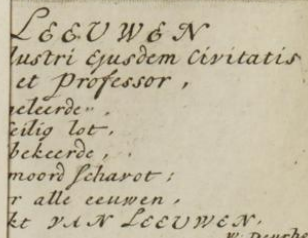 LEEUWEN
lustri Ejusdem Civitatis
et Professor,
geleerde,
eilig lot,
bekeerde,
moord schavot;
r alle eeuwen,
kt VAN LEEUWEN.